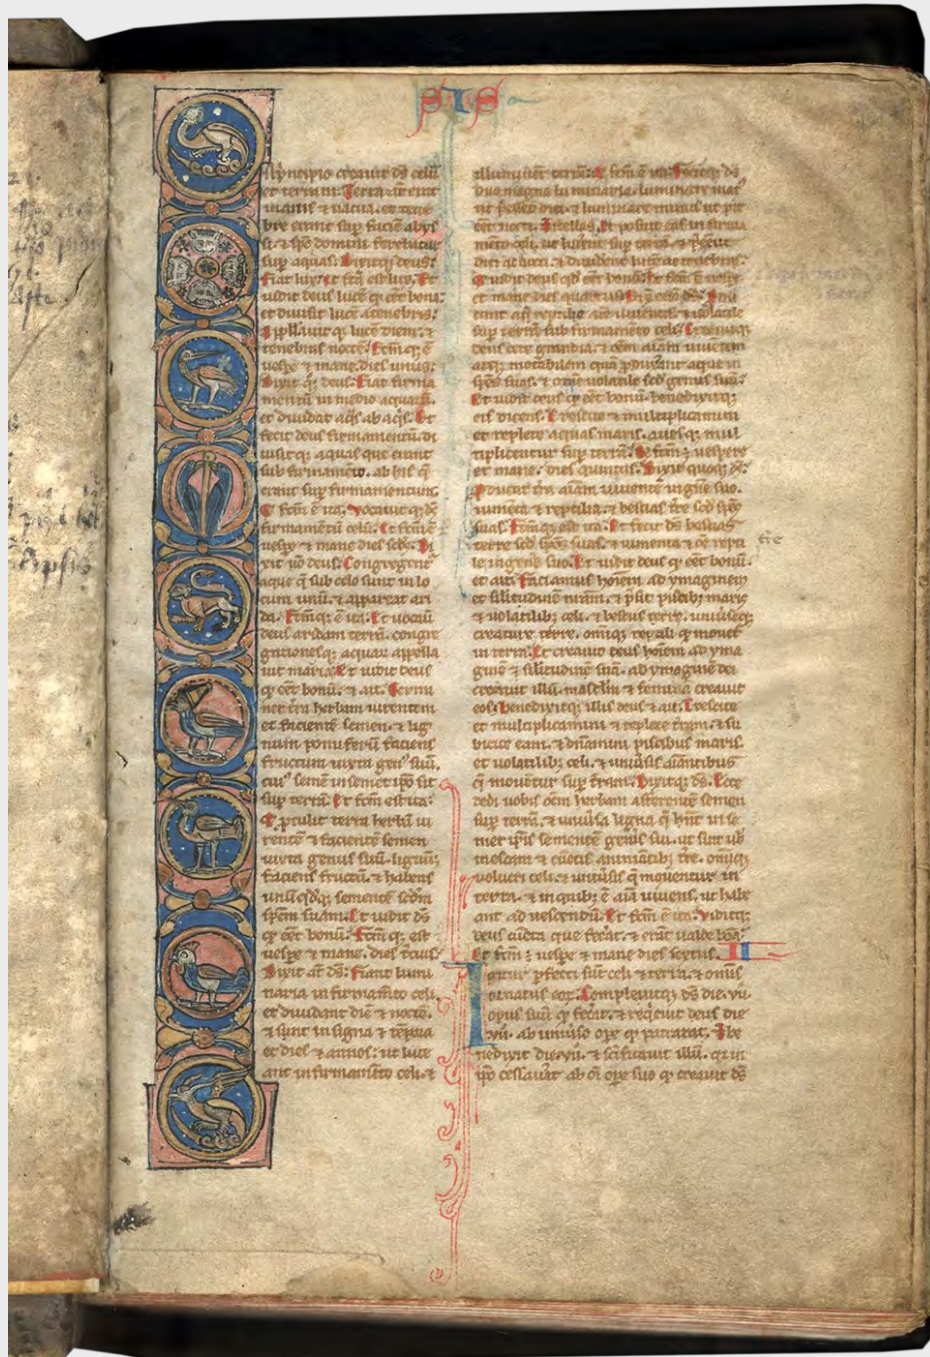 SIS
IN principio creavit ds celu
et terram. Terra aut erat
inanis ⁊ vacua. et tene
bre erant sup faciē abys
si. ⁊ sps domini ferebatur
sup aquas. Dixitq; deus.
Fiat lux. Et fcā est lux. Et
vidit deus lucē qͥ eēt bona.
et divisit lucē a tenebris.
Appllavit q; lucē diem. ⁊
tenebras noctē. Fcm q; ē
vespe ⁊ mane. dies unus.
Dixit qͦq; deus. Fiat firma
mentū in medio aquarū.
et dividat aq̄s ab aq̄s. Et
fecit deus firmamentū. di
visitq; aquas que erant
sub firmamēto. ab his q̄
erant sup firmamentum.
Et fcm ē ita. Vocavit q; ds
firmamētū celū. Et fcm ē
vespe ⁊ mane dies scds. Di
xit vo deus. Congregent
aque q̄ sub celo sunt in lo
cum unū. ⁊ appareat ari
da. Fcm q; ē ita. Et vocavit
deus aridam terrā. congre
gationes q; aquar appella
vit maria. Et vidit deus
qͥ eēt bonū. ⁊ ait. Germi
net tra herbam virentem
et facientē semen. ⁊ lig
num pomiferū faciens
fructum iuxta genus suū.
cuius semē in semet ipo sit
sup terrā. Et fcm est ita.
Et protulit terra herbā vi
rentē ⁊ facientē semen
iuxta genus suū. lignum
faciens fructū. ⁊ habens
unū qdq; sementē scdm
spēm suam. Et vidit ds
qͥ eēt bonū. Fcm q; est
vespe ⁊ mane. dies tcius.
Dixit at ds. Fiant lumi
naria in firmamēto celi.
et dividant diē ⁊ noctē.
⁊ sint in signa ⁊ tēpora
et dies ⁊ annos. ut luce
ant in firmamēto celi. ⁊
illuminēt terrā. Et fcm ē ita. Fecitq; ds
duo magna luminaria. luminare maius
ut pesset diei. ⁊ luminare minus ut pes
eēt nocti. Et stellas. Et posuit eas in firma
mēto celi. ut lucent sup terrā. ⁊ pēent
diei ac nocti. ⁊ divident lucē ac tenebras.
Et vidit deus qd eēt bonū. Et fcm ē vespe
et mane dies quartus. Dixit etiā ds. Pro
ducant aq̄ reptile aīe viventis ⁊ volatile
sup terrā sub firmamēto celi. Creavitq;
deus cete grandia. ⁊ oēm aīam viventem
atq; motabilem quā pduxant aque in
spēs suas. ⁊ omne volatile scd genus suū.
Et vidit deus qͥ eēt bonū. benedixitq;
eis dicens. Crescite ⁊ multiplicamini
et replete aquas maris. aves q; mul
tiplicentur sup terrā. Et fcm ē vespere
et mane. dies quintus. Dixit quoq; ds.
Producat tra aīam viventē in gnē suo.
iumenta ⁊ reptilia. ⁊ bestias tre scd spēs
suas. Fcm q; est ita. Et fecit ds bestias
terre scd spēs suas. ⁊ iumenta ⁊ oē repti
le in gene suo. Et vidit deus qͥ eēt bonū.
et ait. Faciamus hoīem ad ymaginem
et silitudinē nrām. ⁊ psit piscib; maris
⁊ volatilib; celi. ⁊ bestiis terre. univseq;
creature terre. omniq; reptili qͥ movet
in terra. Et creavit deus hoīem ad yma
ginē ⁊ silitudinē suā. ad ymaginē dei
creavit illū. masclm ⁊ femina creavit
eos. Benedixitq; illis deus ⁊ ait. Crescite
et multiplicamini ⁊ replete tram. ⁊ su
bicite eam. ⁊ dnamini piscibus maris.
et volatilib; celi. ⁊ univsis aīantibus
q̄ moventur sup tram. Dixitq; ds. Ecce
dedi vobis oēm herbam afferentē semen
sup terrā. ⁊ univsa ligna q̄ hnt in se
met ipsis sementē genis sui. ut sint vob
in escam ⁊ cunctis animātib; tre. omiq;
volucri celi. ⁊ univsis q̄ moventur in
terra. ⁊ in quib; ē aīa vivens. ut habe
ant ad vescendū. Et fcm ē ita. Viditq;
deus cūcta que fecat. ⁊ erāt valde bona.
Et fcm ē vespe ⁊ mane dies sextus. II
Igitur pfecti sūt celi ⁊ terra. ⁊ omis
ornatus eor. Complevitq; ds die .vii.
opus suū qͥ fecat. ⁊ reqevit deus die
.vii. ab univso ope qͥ patrarat. Et be
nedixit diei .vii. ⁊ scificavit illū. qr in
ipo cessavat ab oī ope suo qͥ creavit ds